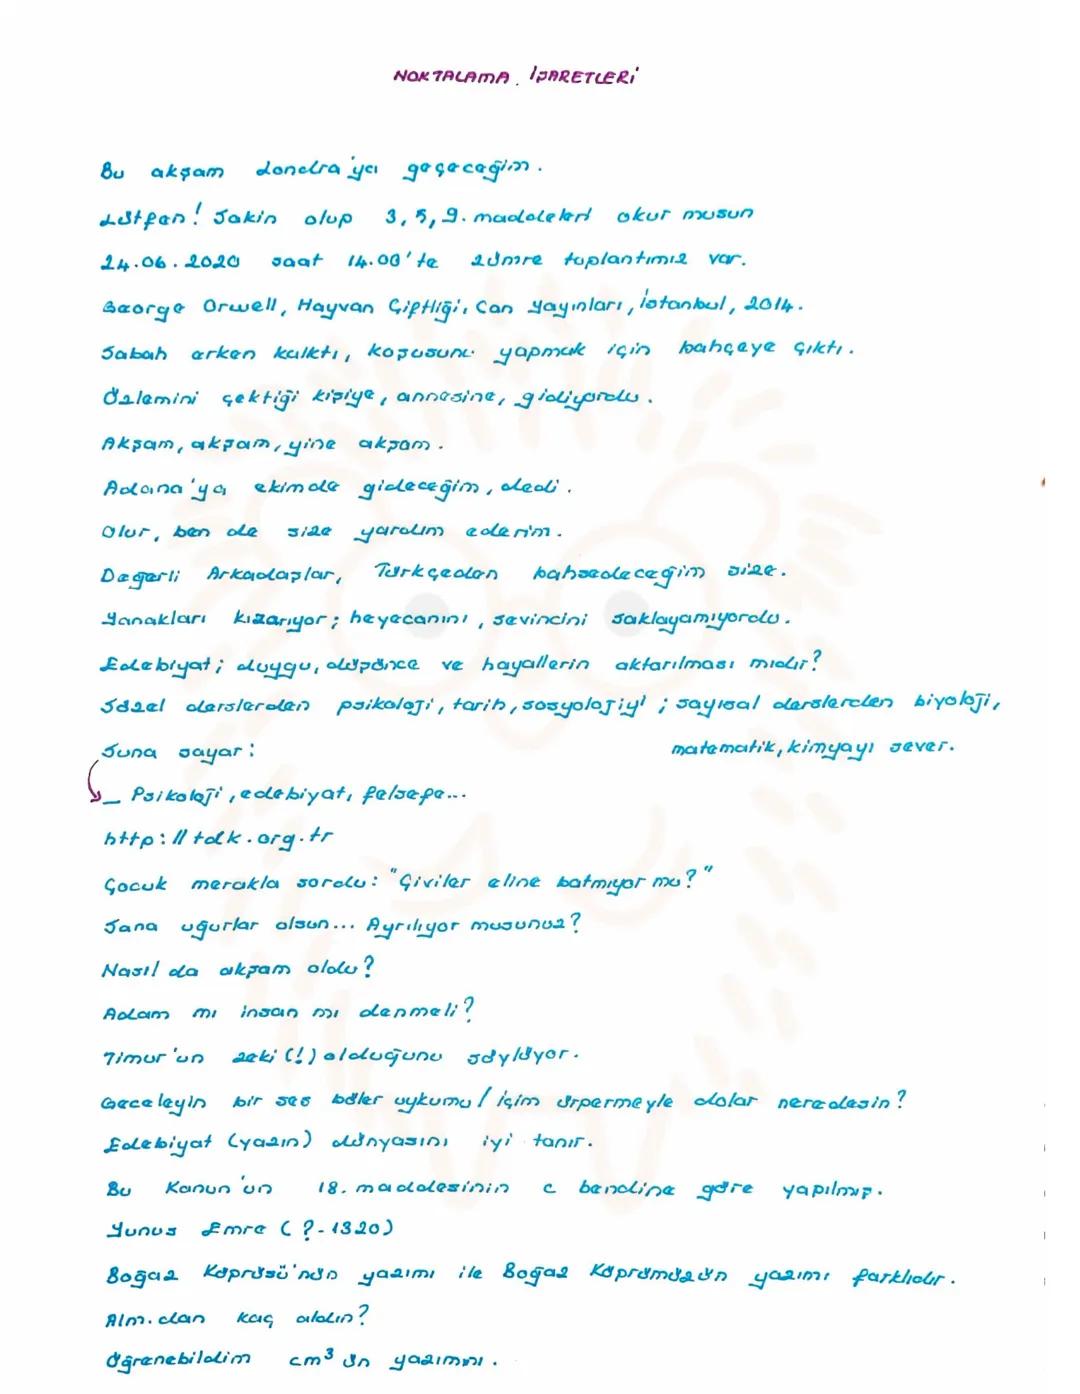 NOKTALAMA İŞARETLERİ
Bu akşam Londra'ya geçeceğim.
Lütfen! Sakin olup 3, 5, 9. maddeleri okur musun
24.06.2020 saat 14.00'te zümre toplantımız var.
George Orwell, Hayvan Çiftliği, Can Yayınları, İstanbul, 2014.
Sabah erken kalktı, koşusunu yapmak için bahçeye çıktı.
Özlemini çektiği kişiye, annesine, gidiyordu.
Akşam, akşam, yine akşam.
Adana'ya ekimde gideceğim, dedi.
Olur, ben de size yardım ederim.
Değerli Arkadaşlar, Türkçeden bahsedeceğim size.
Yanakları kızarıyor; heyecanını, sevincini saklayamıyordu.
Edebiyat; duygu, düşünce ve hayallerin aktarılması mıdır?
Sözel derslerden psikoloji, tarih, sosyolojiyi; sayısal derslerden biyoloji,
matematik, kimyayı sever.
Suna sayar:
_ Psikoloji, edebiyat, felsefe...
http://tdk.org.tr
Çocuk merakla sordu: "Çiviler eline batmıyor mu?"
Sana uğurlar olsun... Ayrılıyor musunuz?
Nasıl da akşam oldu?
Adam mı insan mı denmeli?
Timur'un zeki (!) olduğunu söylüyor.
Geceleyin bir ses böler uykumu / içim ürpermeyle dolar neredesin?
Edebiyat (yazın) dünyasını iyi tanır.
Bu Kanun'un 18. maddesinin c bendine göre yapılmış.
Yunus Emre (?-1320)
Boğaz Köprüsü'nün yazımı ile Boğaz Köprümüzün yazımı farklıdır.
Alm.dan kaç aldın?
Öğrenebildim cm³ ün yazımını.